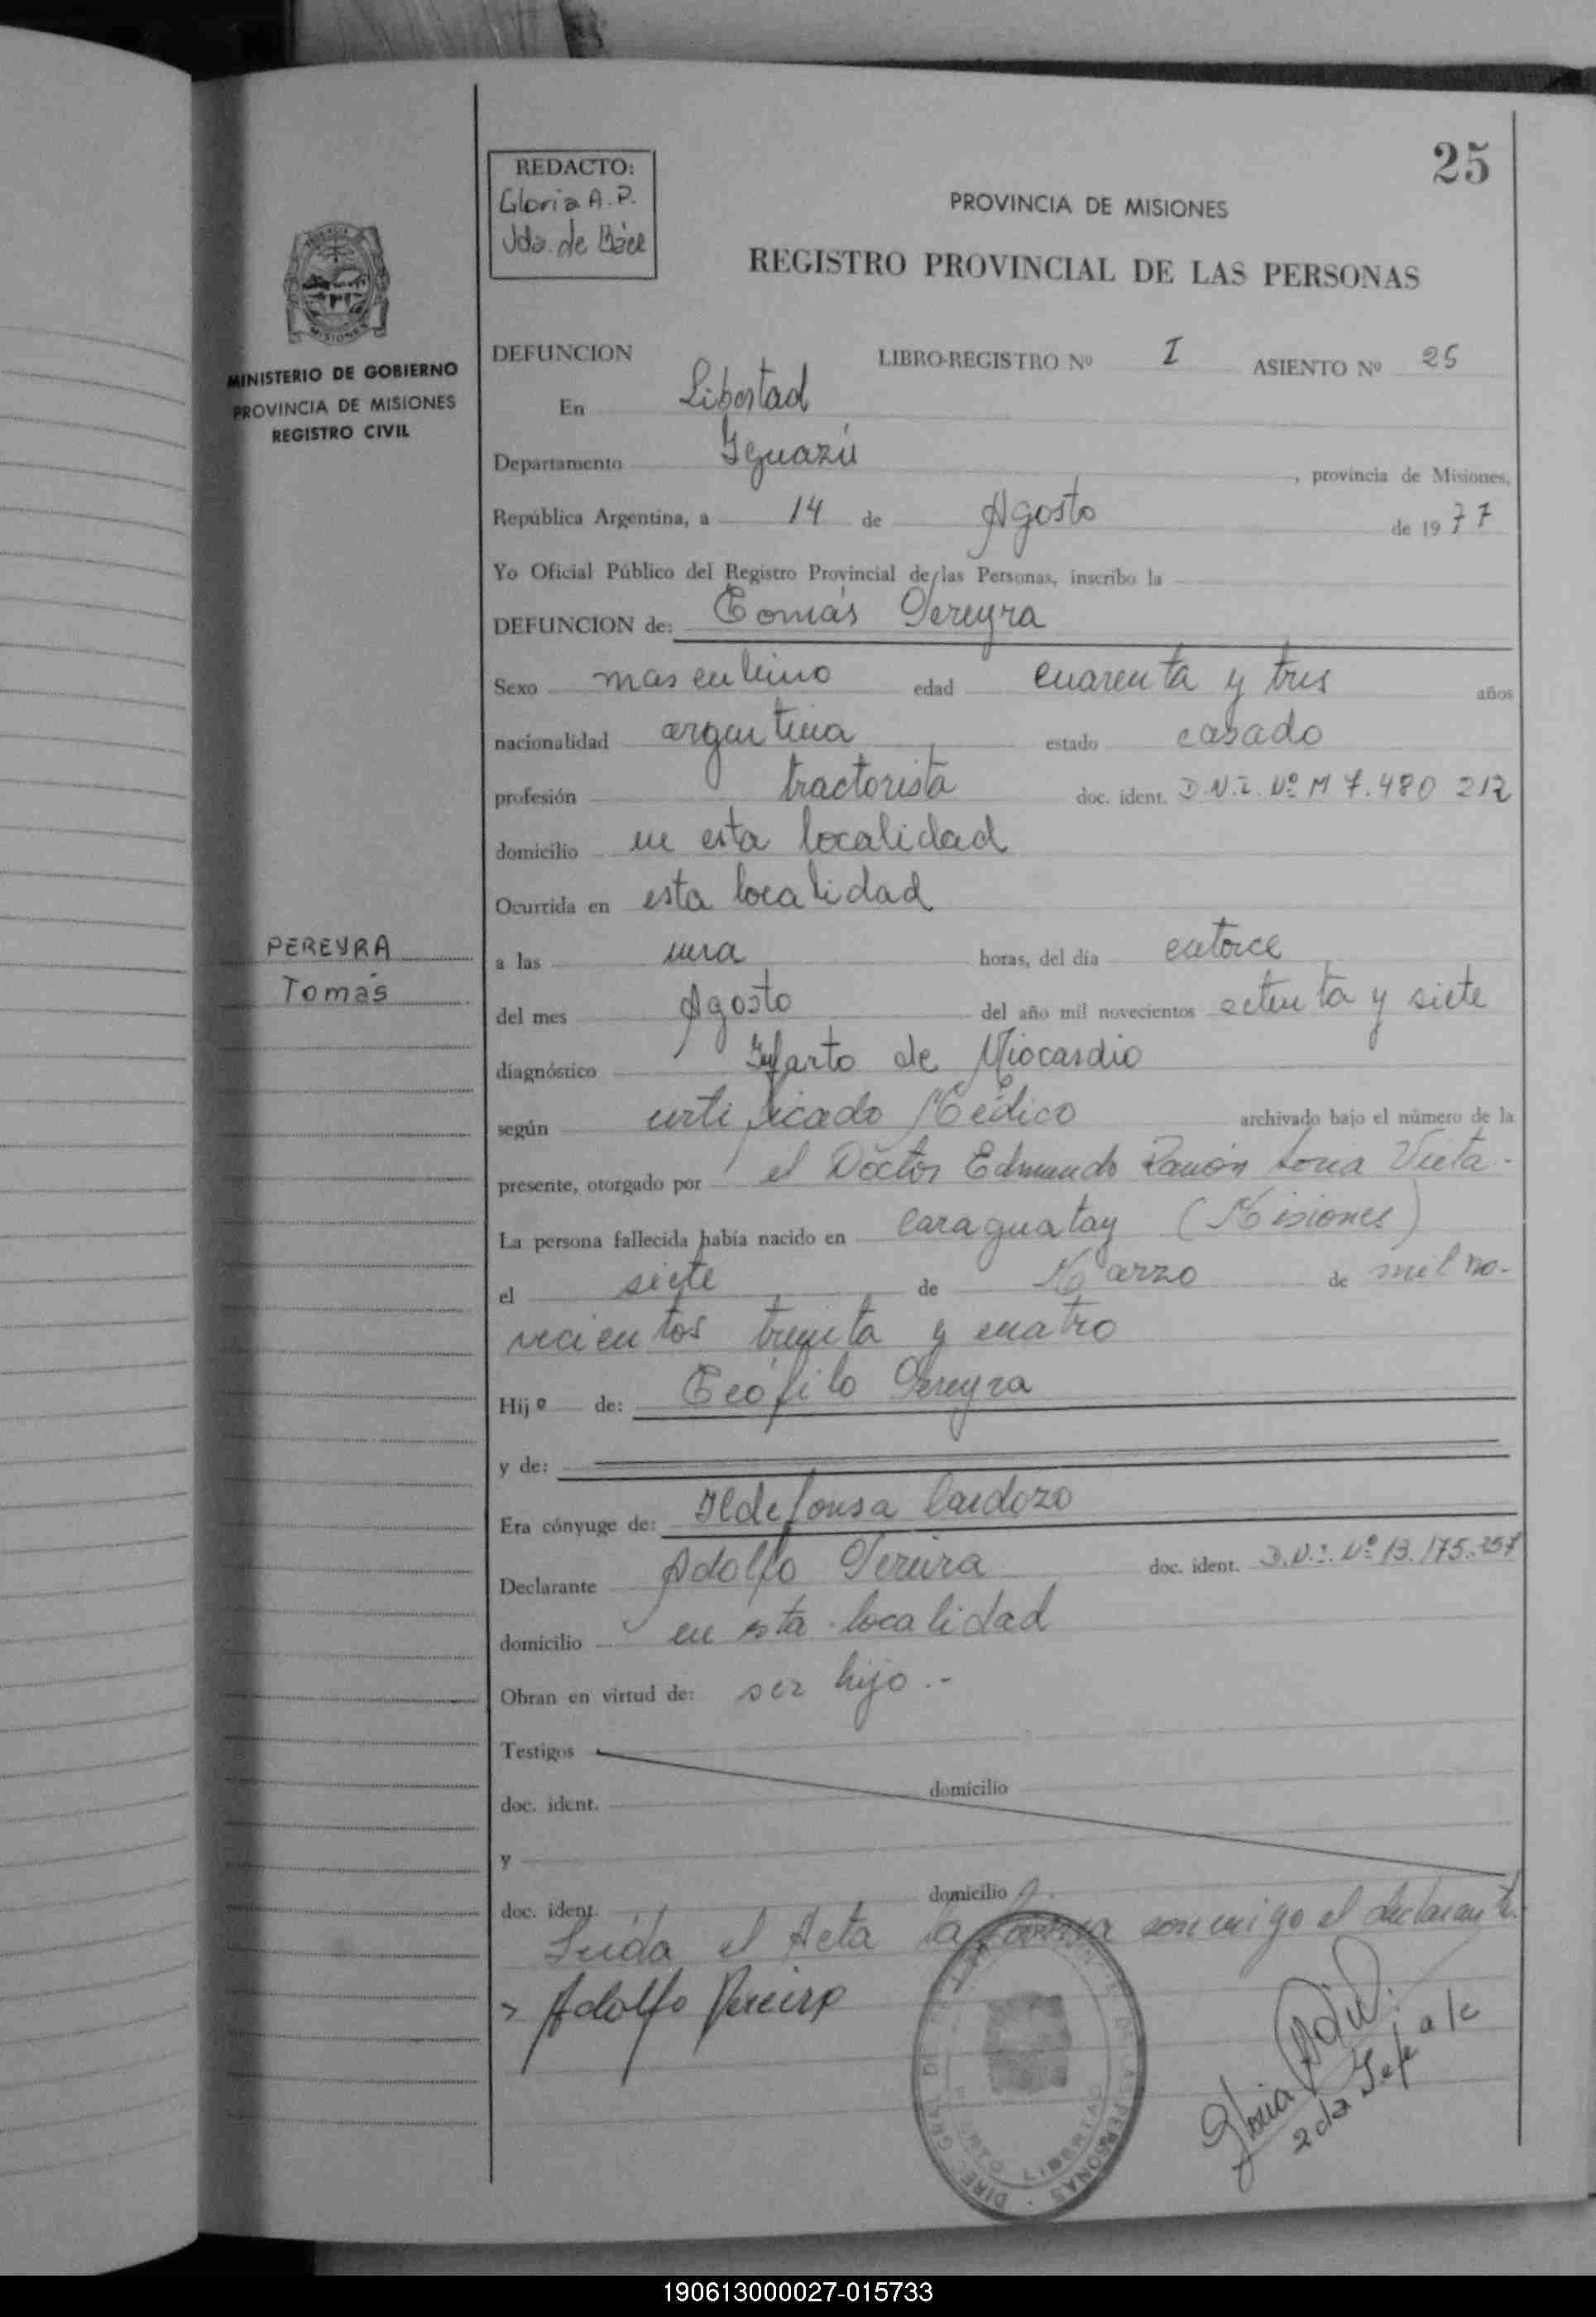 25
REDACTO:
Gloria A. P.
Vda. de Báez
PROVINCIA DE MISIONES
REGISTRO PROVINCIAL DE LAS PERSONAS
MINISTERIO DE GOBIERNO
PROVINCIA DE MISIONES
REGISTRO CIVIL
DEFUNCION LIBRO-REGISTRO Nº I ASIENTO Nº 25
En Libertad
Departamento Iguazú, provincia de Misiones,
República Argentina, a 14 de Agosto de 1977
Yo Oficial Público del Registro Provincial de las Personas, inscribo la
DEFUNCION de: Tomás Pereyra
Sexo masculino edad cuarenta y tres años
nacionalidad argentina estado casado
profesión tractorista doc. ident. D.N.I. Nº M 7.480 212
domicilio en esta localidad
Ocurrida en esta localidad
PEREYRA
Tomás
a las una horas, del día catorce
del mes Agosto del año mil novecientos setenta y siete
diagnóstico Infarto de Miocardio
según certificado Médico archivado bajo el número de la
presente, otorgado por el Doctor Edmundo Ramón Soria Vieta.-
La persona fallecida había nacido en Caraguatay (Misiones)
el siete de Marzo de mil no-
vecientos treinta y cuatro
Hijo de: Teófilo Pereyra
y de:
Era cónyuge de: Ildefonsa Cardozo
Declarante Adolfo Pereira doc. ident. D.N.I. Nº 13.175.257
domicilio en esta localidad
Obran en virtud de: ser hijo.-
Testigos
doc. ident. domicilio
y
doc. ident. domicilio
Leída el Acta la firma conmigo el declarante.
Adolfo Pereira
Gloria
2da Jefe a/c
DE LAS PERSONAS
190613000027-015733